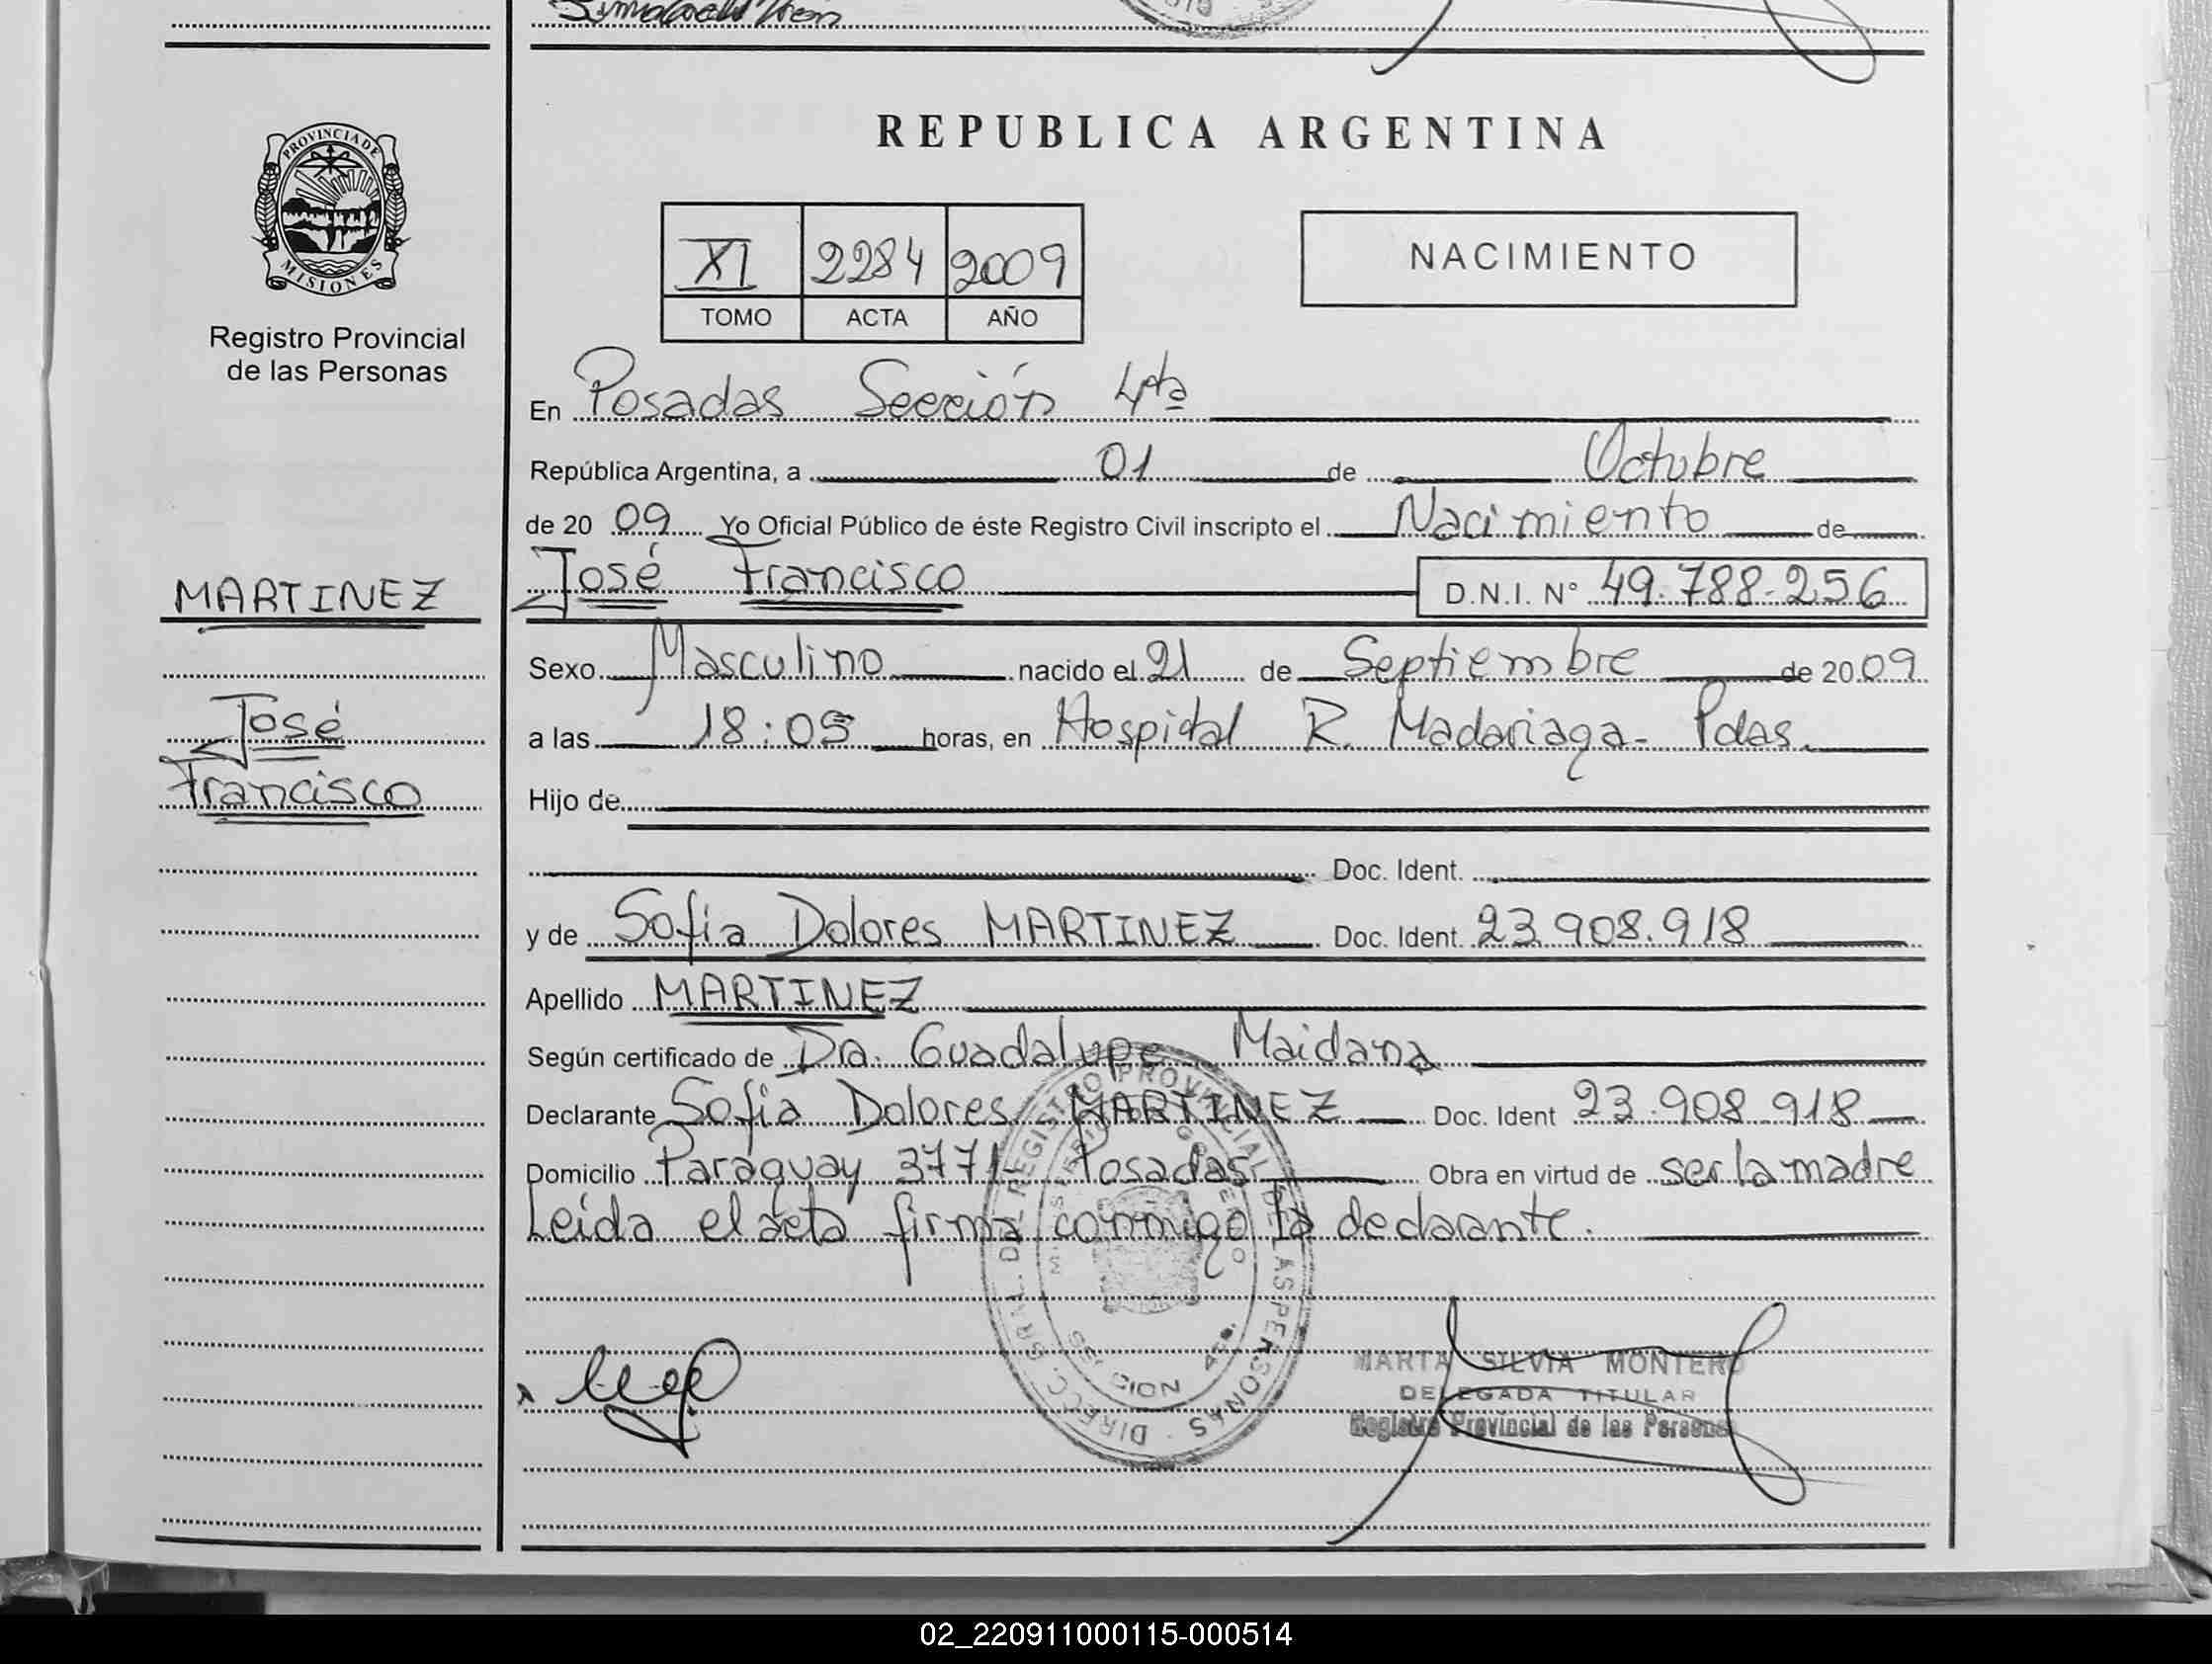 PROVINCIA DE
MISIONES
Registro Provincial
de las Personas
MARTINEZ
José
Francisco
REPUBLICA ARGENTINA
XI 2284 2009
TOMO ACTA AÑO
NACIMIENTO
En Posadas Sección 4ta
República Argentina, a 01 de Octubre
de 20 09 Yo Oficial Público de éste Registro Civil inscripto el Nacimiento de
José Francisco D.N.I. N° 49.788.256
Sexo Masculino nacido el 21 de Septiembre de 20 09
a las 18:05 horas, en Hospital R. Madariaga - Pdas.
Hijo de
Doc. Ident.
y de Sofia Dolores MARTINEZ Doc. Ident. 23.908.918
Apellido MARTINEZ
Según certificado de Dra. Guadalupe Maidana
Declarante Sofia Dolores MARTINEZ Doc. Ident 23.908.918
Domicilio Paraguay 3771 - Posadas Obra en virtud de ser la madre
Leída el acta firma conmigo la declarante.
DIRECC. GRAL. DEL REGISTRO PROVINCIAL DE LAS PERSONAS
MARTA SILVIA MONTERO
DELEGADA TITULAR
Registro Provincial de las Personas
02_220911000115-000514